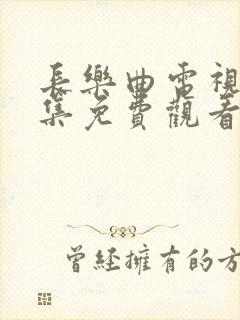 長樂曲電視
集免費觀看
曾經擁有的方